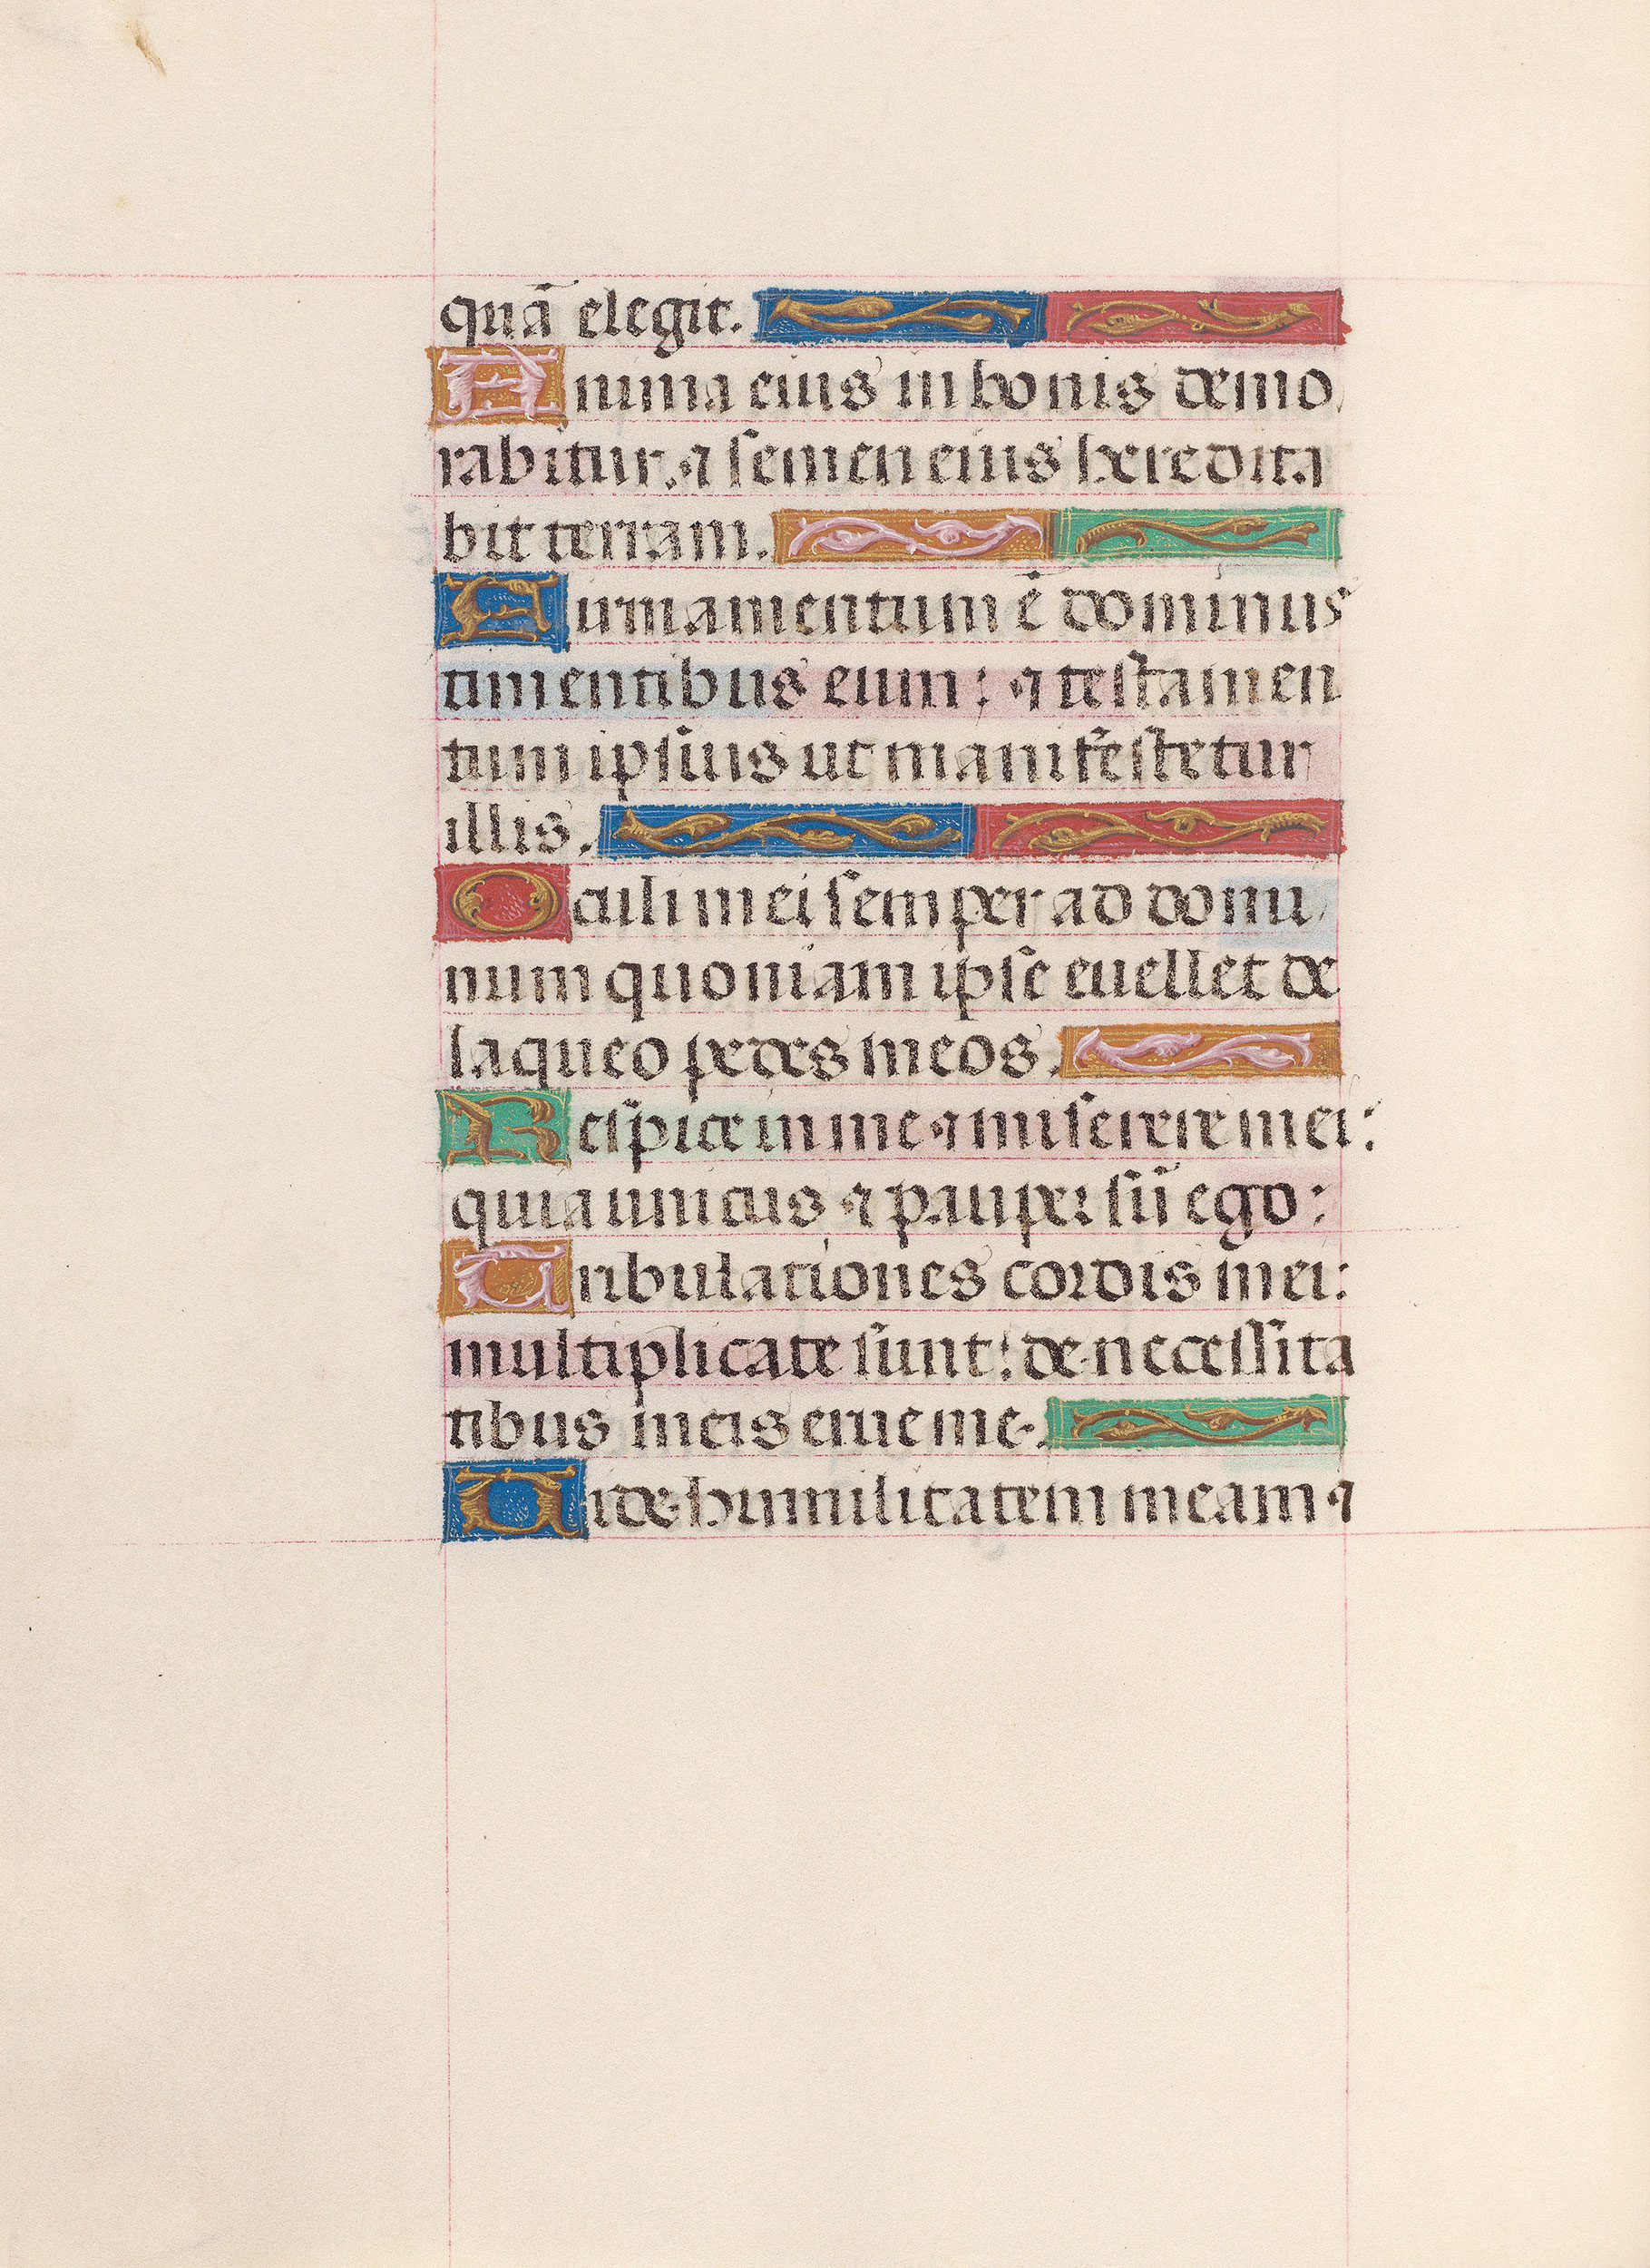 quā elegit.
Anima eius in bonis demo
rabitur. ⁊ semen eius heredita
bit terram.
Firmamentum ē dominus
timentibus eum: ⁊ testamen
tum ipsius ut manifestetur
illis.
Oculi mei semper ad domi
num quoniam ipse euellet de
laqueo pedes meos.
Respice in me ⁊ miserere mei:
quia unicus ⁊ pauper sū ego:
Tribulationes cordis mei:
multiplicate sunt: de necessita
tibus meis erue me.
Vide humilitatem meam ⁊